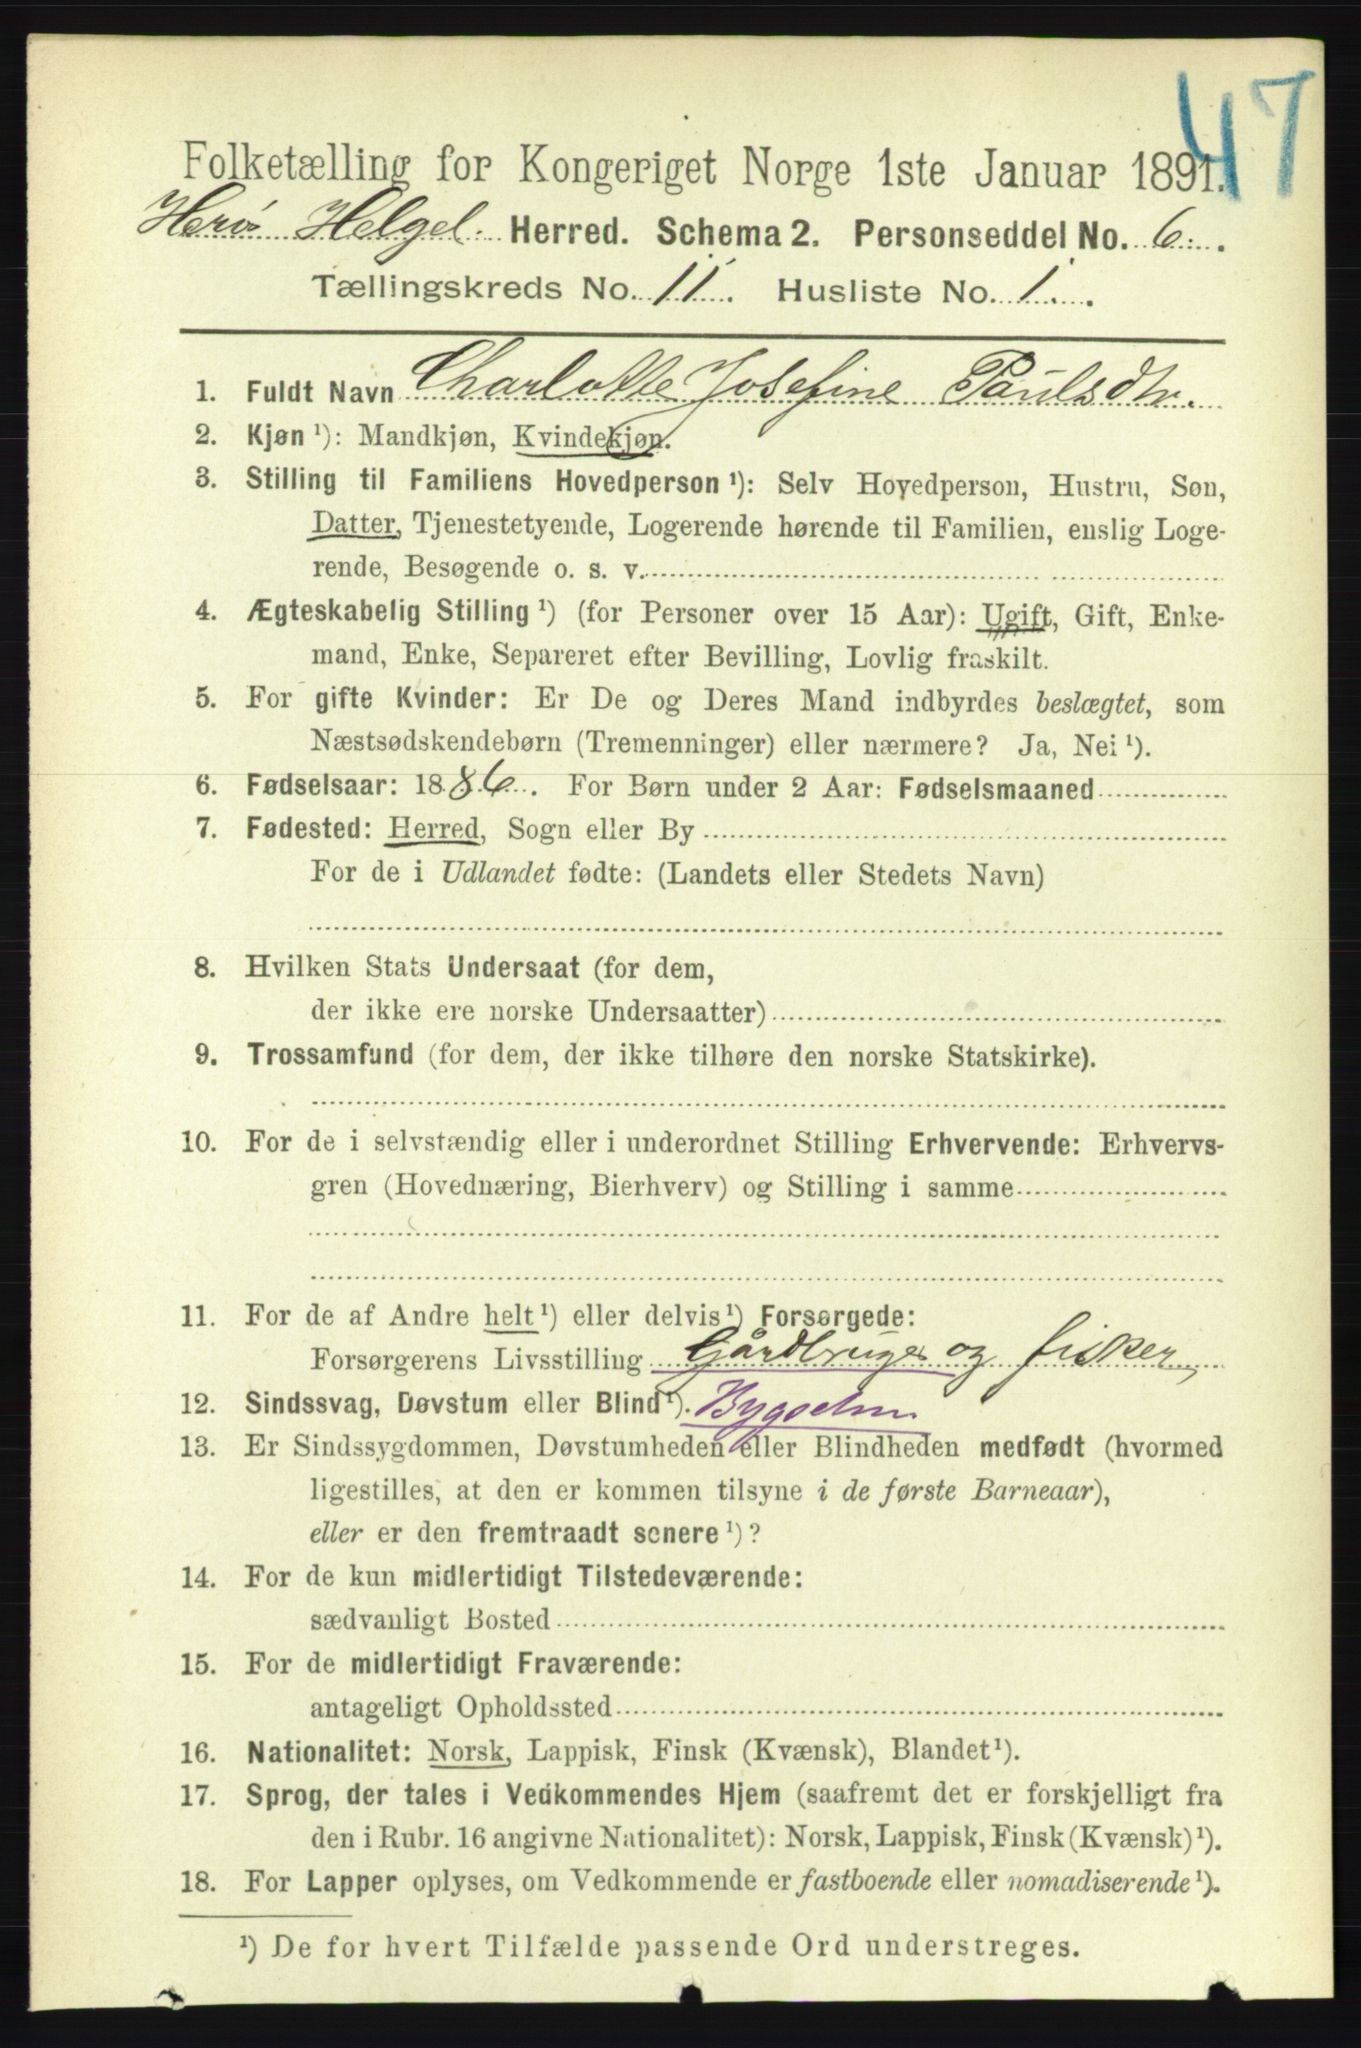 47
Folketælling for Kongeriget Norge 1ste Januar 1891.
Herø Helgel. Herred. Schema 2. Personseddel No. 6.
Tællingskreds No. 11. Husliste No. 1.
1. Fuldt Navn Charlotte Josefine Paulsdtr.
2. Kjøn ¹): Mandkjøn, Kvindekjøn.
3. Stilling til Familiens Hovedperson ¹): Selv Hovedperson, Hustru, Søn,
Datter, Tjenestetyende, Logerende hørende til Familien, enslig Loge-
rende, Besøgende o. s. v.
4. Ægteskabelig Stilling ¹) (for Personer over 15 Aar): Ugift, Gift, Enke-
mand, Enke, Separeret efter Bevilling, Lovlig fraskilt.
5. For gifte Kvinder: Er De og Deres Mand indbyrdes beslægtet, som
Næstsødskendebørn (Tremenninger) eller nærmere? Ja, Nei ¹).
6. Fødselsaar: 1886. For Børn under 2 Aar: Fødselsmaaned
7. Fødested: Herred, Sogn eller By
For de i Udlandet fødte: (Landets eller Stedets Navn)
8. Hvilken Stats Undersaat (for dem,
der ikke ere norske Undersaatter)
9. Trossamfund (for dem, der ikke tilhøre den norske Statskirke).
10. For de i selvstændig eller i underordnet Stilling Erhvervende: Erhvervs-
gren (Hovednæring, Bierhverv) og Stilling i samme
11. For de af Andre helt ¹) eller delvis ¹) Forsørgede:
Forsørgerens Livsstilling Gårdbruger og fisker
12. Sindssvag, Døvstum eller Blind ¹).
13. Er Sindssygdommen, Døvstumheden eller Blindheden medfødt (hvormed
ligestilles, at den er kommen tilsyne i de første Barneaar),
eller er den fremtraadt senere ¹)?
14. For de kun midlertidigt Tilstedeværende:
sædvanligt Bosted
15. For de midlertidigt Fraværende:
antageligt Opholdssted
16. Nationalitet: Norsk, Lappisk, Finsk (Kvænsk), Blandet ¹).
17. Sprog, der tales i Vedkommendes Hjem (saafremt det er forskjelligt fra
den i Rubr. 16 angivne Nationalitet): Norsk, Lappisk, Finsk (Kvænsk) ¹).
18. For Lapper oplyses, om Vedkommende er fastboende eller nomadiserende ¹).
¹) De for hvert Tilfælde passende Ord understreges.